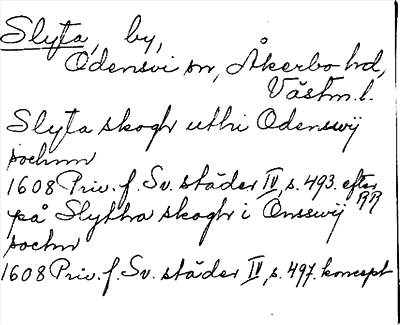 Slyta, by,
Odensvi sn, Åkerbo hd,
Västm. l.
Slyta skogh uthi Odenswij
sochnn
1608 Priv. f. Sv. städer IV, s. 493. efter RR
på Slytha skogh i Onsswij
sochn
1608 Priv. f. Sv. städer IV, s. 497. koncept